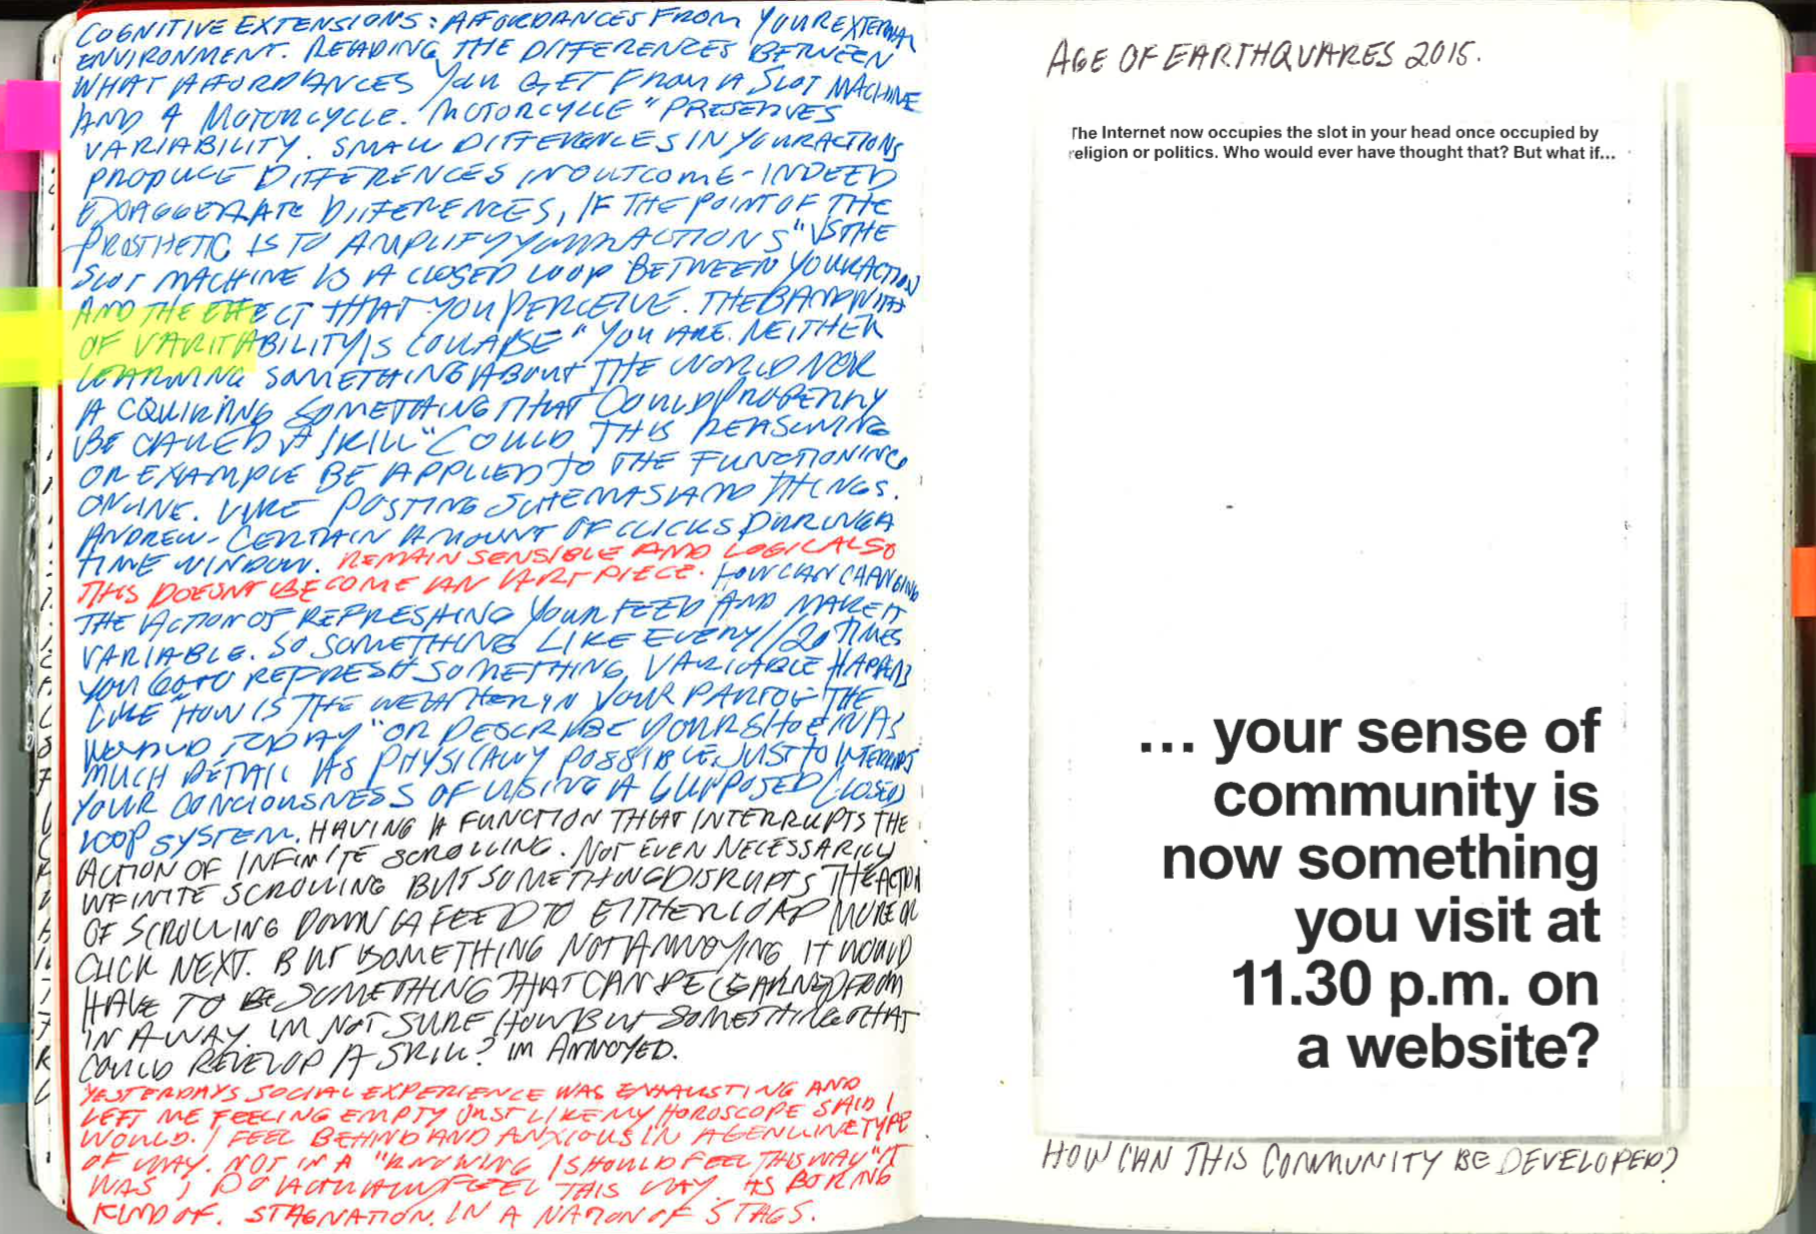 COGNITIVE EXTENSIONS: AFFORDANCES FROM YOUR EXTERNAL
ENVIRONMENT. READING THE DIFFERENCES BETWEEN
WHAT AFFORDANCES YOU GET FROM A SLOT MACHINE
AND A MOTORCYCLE. MOTORCYCLE "PRESERVES
VARIABILITY. SMALL DIFFERENCES IN YOUR ACTIONS
PRODUCE DIFFERENCES IN OUTCOME - INDEED
EXAGGERATE DIFFERENCES, IF THE POINT OF THE
PROSTHETIC IS TO AMPLIFY YOUR ACTIONS" VS THE
SLOT MACHINE IS A CLOSED LOOP BETWEEN YOUR ACTION
AND THE EFFECT THAT YOU PERCEIVE. THE BANDWITH
OF VARITABILITY IS COLLAPSE "YOU ARE NEITHER
LEARNING SOMETHING ABOUT THE WORLD NOR
ACQUIRING SOMETHING THAT COULD PROPERLY
BE CALLED A SKILL" COULD THIS REASONING
OR EXAMPLE BE APPLIED TO THE FUNCTIONING
ONLINE. LIKE POSTING SCHEMAS AND THINGS.
ANDREW - CERTAIN AMOUNT OF CLICKS DURING A
TIME WINDOW. REMAIN SENSIBLE AND LOGICAL SO
THIS DOESNT BECOME AN ART PIECE. HOW CAN CHANGING
THE ACTION OF REFRESHING YOUR FEED AND MAKE IT
VARIABLE. SO SOMETHING LIKE EVERY 1/20 TIMES
YOU GO TO REFRESH SOMETHING VARIABLE HAPPENS
LIKE "HOW IS THE WEATHER IN YOUR PART OF THE
WORLD TODAY" OR DESCRIBE YOUR SHOE IN AS
MUCH DETAIL AS PHYSICALLY POSSIBLE. JUST TO INTERRUPT
YOUR CONCIOUSNESS OF USING A SUPPOSED CLOSED
LOOP SYSTEM. HAVING A FUNCTION THAT INTERRUPTS THE
ACTION OF INFINITE SCROLLING. NOT EVEN NECESSARILY
INFINITE SCROLLING BUT SOMETHING DISRUPTS THE ACTION
OF SCROLLING DOWN A FEED TO EITHER LOAD MORE OR
CLICK NEXT. BUT SOMETHING NOT ANNOYING IT WOULD
HAVE TO BE SOMETHING THAT CAN BE LEARNED FROM
IN A WAY. IM NOT SURE HOW BUT SOMETHING THAT
COULD DEVELOP A SKILL? IM ANNOYED.
YESTERDAYS SOCIAL EXPERIENCE WAS EXHAUSTING AND
LEFT ME FEELING EMPTY JUST LIKE MY HOROSCOPE SAID I
WOULD. I FEEL BEHIND AND ANXIOUS IN A GENUINE TYPE
OF WAY. NOT IN A "KNOWING I SHOULD FEEL THIS WAY" IT
WAS I DO ACTUALLY FEEL THIS WAY. AS BORING
KIND OF. STAGNATION. IN A NATION OF STAGS.
AGE OF EARTHQUAKES 2015.
The Internet now occupies the slot in your head once occupied by
religion or politics. Who would ever have thought that? But what if...
... your sense of
community is
now something
you visit at
11.30 p.m. on
a website?
HOW CAN THIS COMMUNITY BE DEVELOPED?